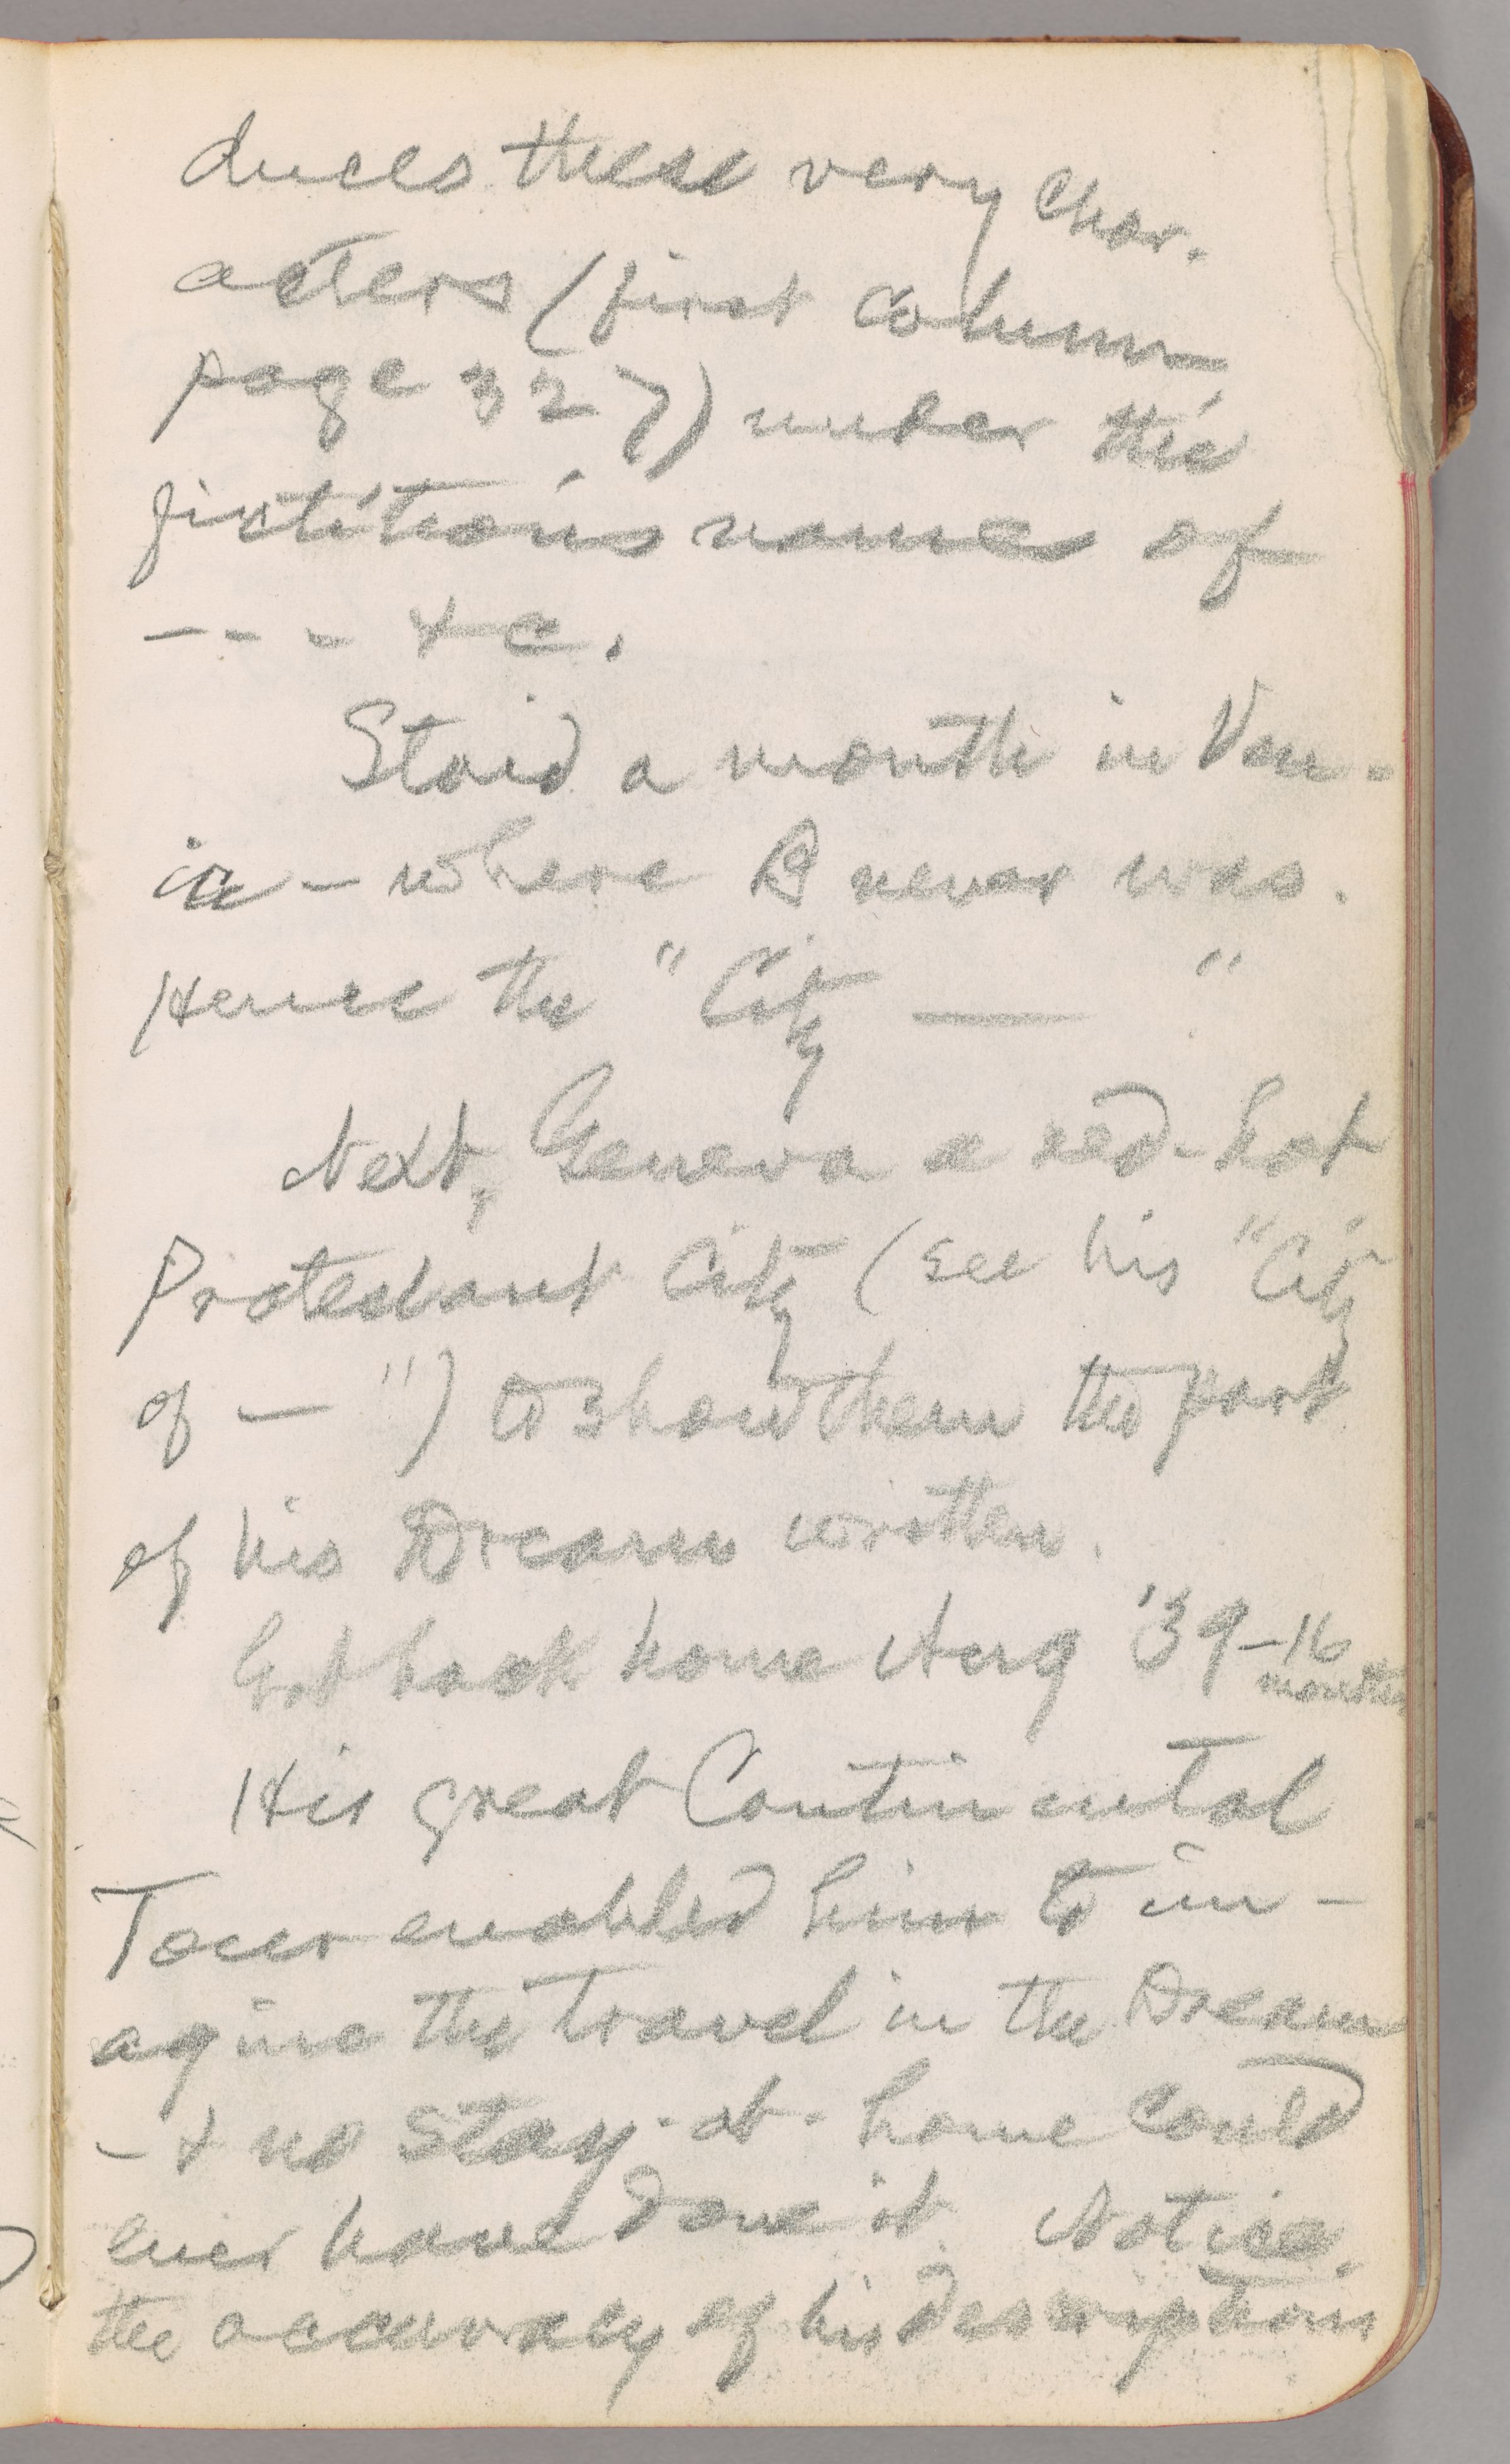 duces these very char.
acters (first column,
page 327) under the
fictitious names of
- - - &c.
Staid a month in Ven-
ice - where B never was.
Hence the "City —— "
Next, Geneva a red-hot
Protestant City (see his "City
of — ") to show them the part
of his Dream written.
Got back home Aug '39 - 16
months
His great Continental
Tour enabled him to im-
agine the travel in the Dream
- & no stay-at-home could
ever have done it. Notice
the accuracy of his descriptions